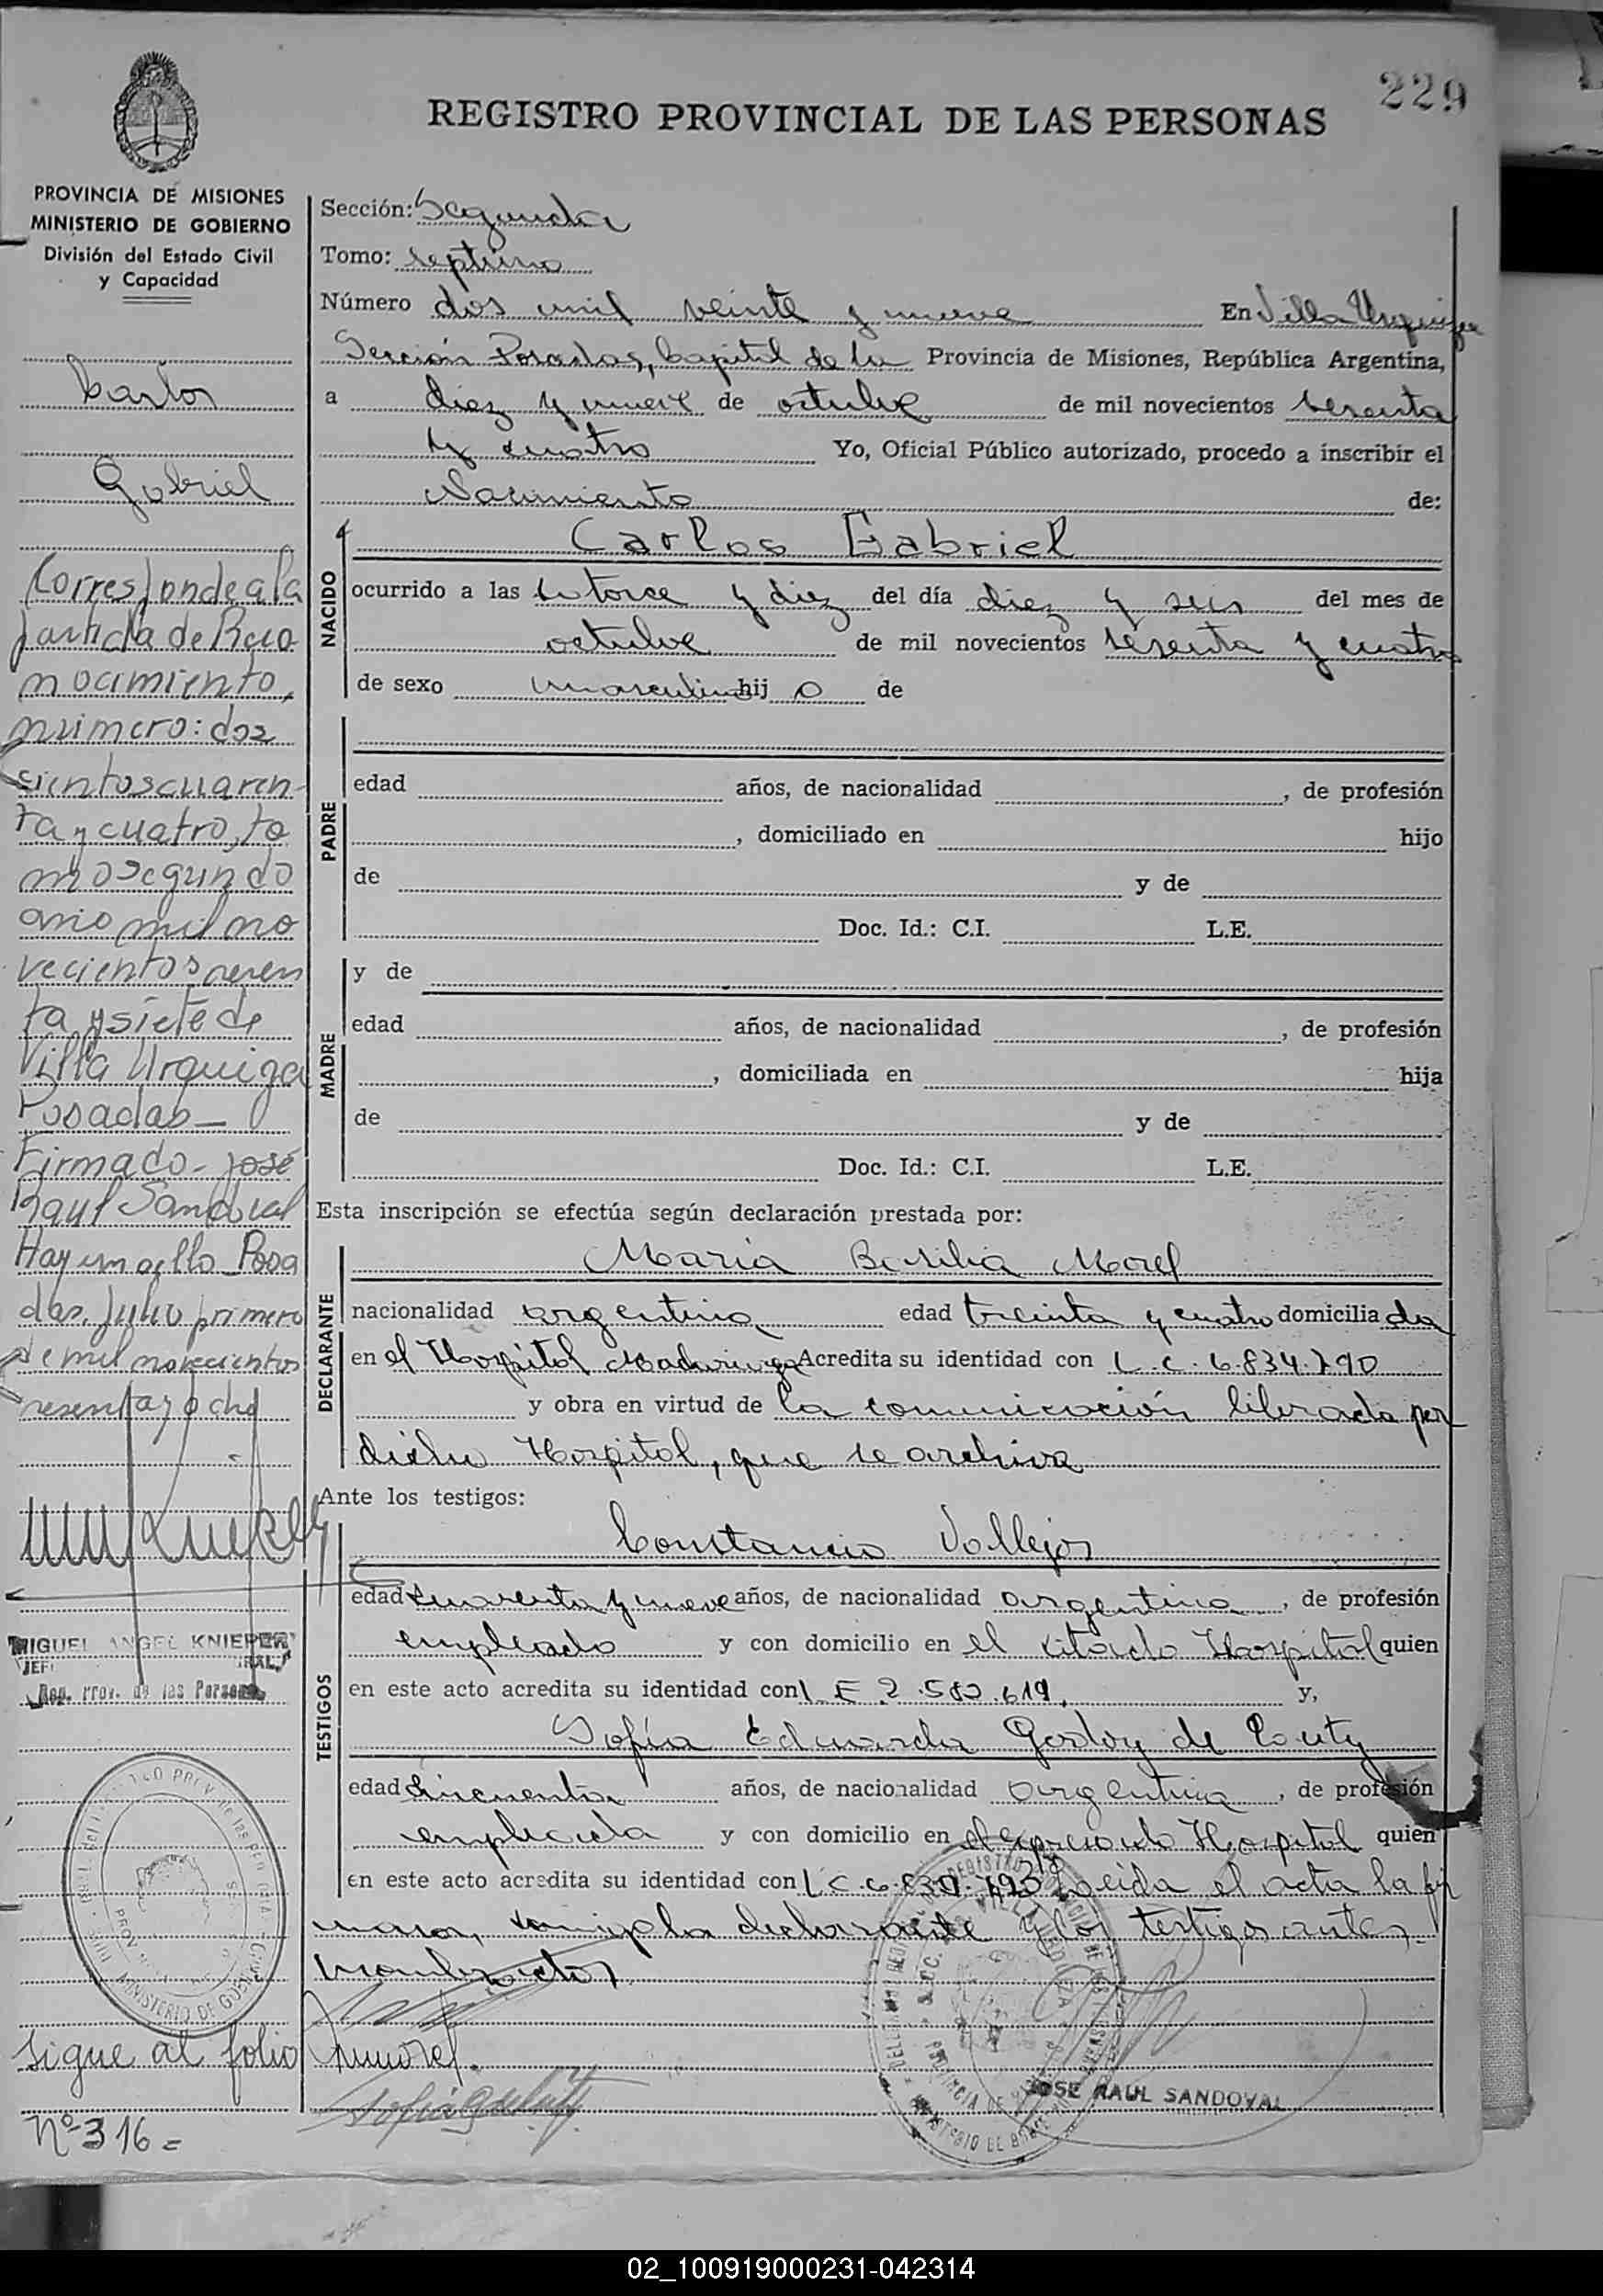 229
REGISTRO PROVINCIAL DE LAS PERSONAS
PROVINCIA DE MISIONES
MINISTERIO DE GOBIERNO
División del Estado Civil
y Capacidad
Carlos
Gabriel
Corresponde a la
partida de Reco
nocimiento,
número: dos
cientos cuaren
ta y cuatro, to
mo segundo
año mil no
vecientos sesen
ta y siete de
Villa Urquiza
Posadas_
Firmado_ José
Raul Sandoval
Hay un sello_ Posa
das, Julio primero
de mil novecientos
sesenta y ocho
MIGUEL ANGEL KNIEPER
JEF RAL.
Reg. Prov. de las Personas
sigue al folio
Nº 316=
Sección: Segunda
Tomo: septimo
Número dos mil veinte y nueve En Villa Urquiza
Sección Posadas, Capital de la Provincia de Misiones, República Argentina,
a diez y nueve de octubre de mil novecientos sesenta
y cuatro Yo, Oficial Público autorizado, procedo a inscribir el
Nacimiento de:
NACIDO
Carlos Gabriel
ocurrido a las catorce y diez del día diez y seis del mes de
octubre de mil novecientos sesenta y cuatro
de sexo masculino hij o de
PADRE
edad años, de nacionalidad , de profesión
, domiciliado en hijo
de y de
Doc. Id.: C.I. L.E.
MADRE
y de
edad años, de nacionalidad , de profesión
, domiciliada en hija
de y de
Doc. Id.: C.I. L.E.
Esta inscripción se efectúa según declaración prestada por:
DECLARANTE
Maria Basilia Morel
nacionalidad argentina edad treinta y cuatro domicilia da
en el Hospital Madariaga Acredita su identidad con L.C. 6.834.790
y obra en virtud de la comunicación librada por
dicho Hospital, que se archiva
Ante los testigos:
TESTIGOS
Constancio Vallejos
edad cuarenta y nueve años, de nacionalidad argentina, de profesión
empleado y con domicilio en el citado Hospital quien
en este acto acredita su identidad con L E 2.582.619, y,
Sofía Eduarda Godoy de Couty
edad cincuenta años, de nacionalidad argentina, de profesión
empleada y con domicilio en el expresado Hospital quien
en este acto acredita su identidad con L.C. Leida el acta la fir
maron, conmigo la declarante y los testigos antes
nombrados.
JOSE RAUL SANDOVAL
02_100919000231-042314